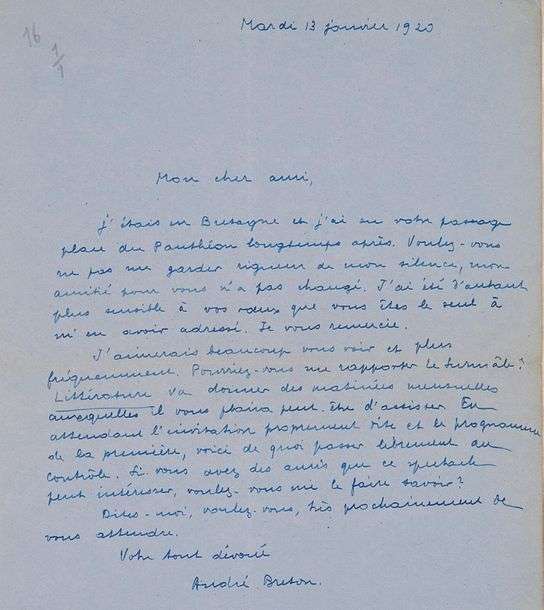 16
1/1
Mardi 13 janvier 1920
Mon cher ami,
j'étais en Bretagne et j'ai su votre passage
place du Panthéon longtemps après. Voulez-vous
ne pas me garder rigueur de mon silence, mon
amitié pour vous n'a pas changé. J'ai été d'autant
plus sensible à vos vœux que vous êtes le seul à
m'en avoir adressé. Je vous remercie.
J'aimerais beaucoup vous voir et plus
fréquemment. Pourriez-vous me rapporter le Surmâle?
Littérature va donner des matinées mensuelles
auxquelles il vous plaira peut-être d'assister. En
attendant l'invitation proprement dite et le programme
de la première, voici de quoi passer librement au
contrôle. Si vous avez des amis que ce spectacle
peut intéresser, voulez-vous me le faire savoir?
Dites-moi, voulez-vous, très prochainement de
vous attendre.
Votre tout dévoué
André Breton.